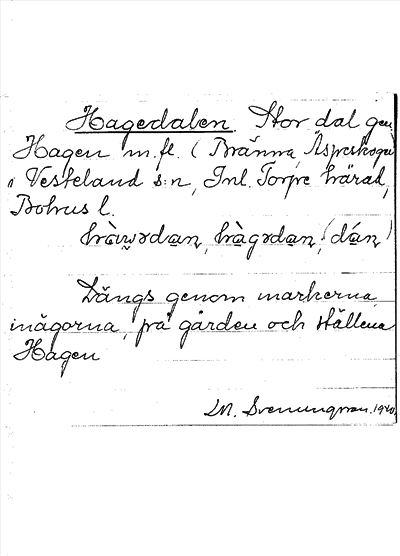 Hagedalen. Stor dal gen.
Hagen m.fl. (Bränna, Äsperskogen
i Vesteland s:n, Inl. Torpe härad,
Bohus l.
(dán)
Längs genom markerna,
inägorna, på gården och Ställena
Hagen
M. Svenungsson. 1940.